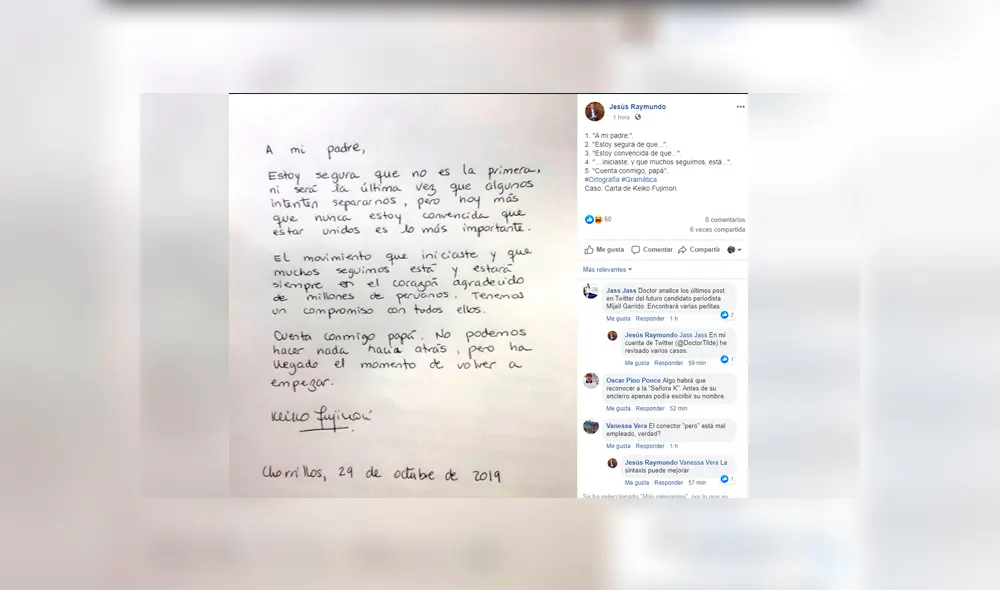 A mi padre,
Estoy segura que no es la primera,
ni será la última vez que algunos
intenten separarnos, pero hoy más
que nunca estoy convencida que
estar unidos es lo más importante.
El movimiento que iniciaste y que
muchos seguimos está y estará
siempre en el corazón agradecido
de millones de peruanos. Tenemos
un compromiso con todos ellos.
Cuenta conmigo papá. No podemos
hacer nada hacia atrás, pero ha
llegado el momento de volver a
empezar.
Keiko Fujimori
Chorrillos, 29 de octubre de 2019
Jesús Raymundo
1 hora
1. "A mi padre:".
2. "Estoy segura de que...".
3. "Estoy convencida de que...".
4. "... iniciaste, y que muchos seguimos, está...".
5. "Cuenta conmigo, papá".
#Ortografía #Gramática
Caso: Carta de Keiko Fujimori.
60
8 comentarios
6 veces compartida
Me gusta Comentar Compartir
Más relevantes
Jass Jass Doctor analice los últimos post
en Twitter del futuro candidato periodista
Mijaíl Garrido. Encontrará varias perlitas
2
Me gusta · Responder · 1 h
Jesús Raymundo Jass Jass En mi
cuenta de Twitter (@DoctorTilde) he
revisado varios casos.
1
Me gusta · Responder · 59 min
Oscar Pino Ponce Algo habrá que
reconocer a la "Señora K". Antes de su
encierro apenas podía escribir su nombre.
Me gusta · Responder · 52 min
Vanessa Vera El conector "pero" está mal
empleado, verdad?
Me gusta · Responder · 1 h
Jesús Raymundo Vanessa Vera La
sintaxis puede mejorar
1
Me gusta · Responder · 57 min
Se ha seleccionado "Más relevantes", por lo que es